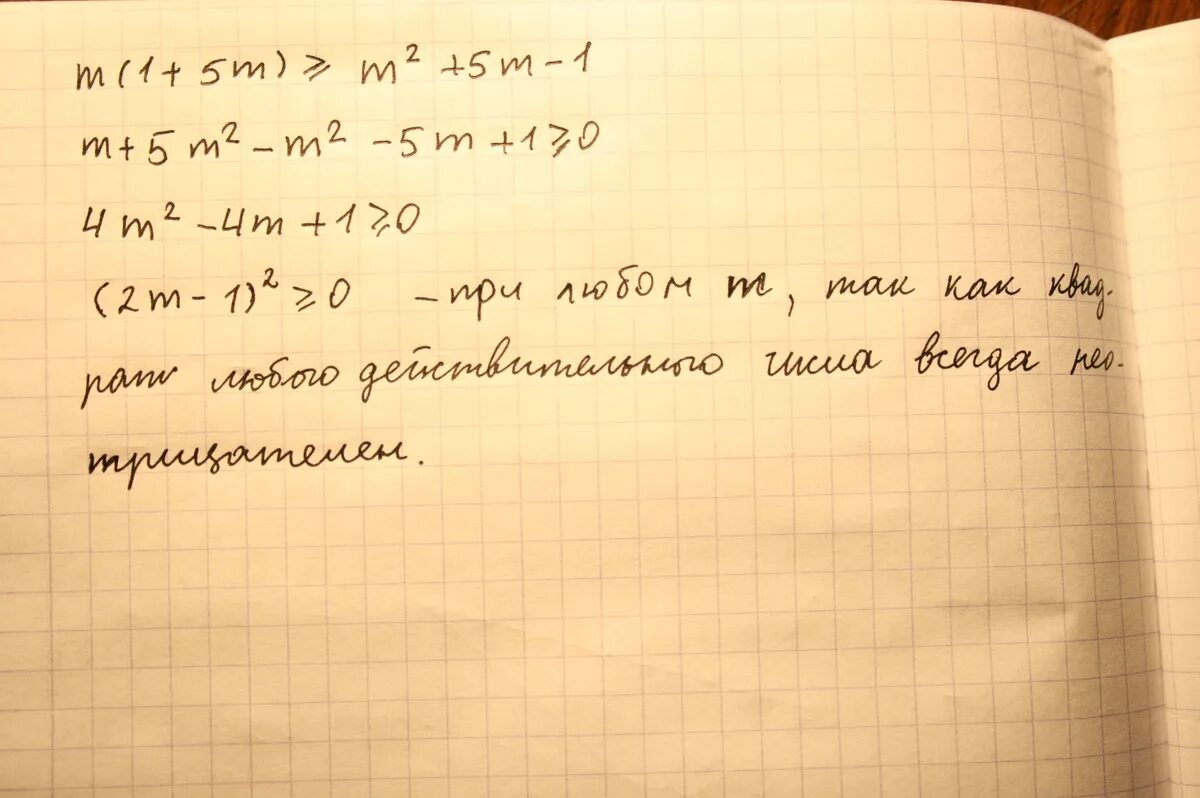 m(1+5m) ⩾ m² +5m-1
m+5m² -m² -5m+1⩾0
4m² -4m+1⩾0
(2m-1)² ⩾0 -при любом m, так как квад-
рат любого действительного числа всегда нео-
трицателен.